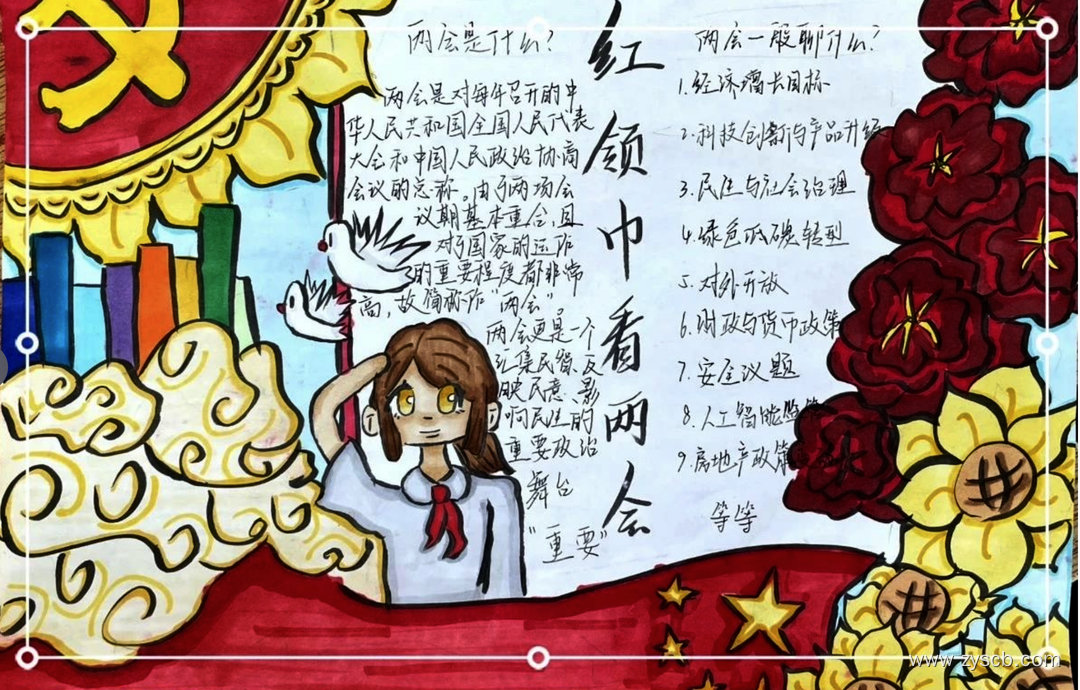 两会是什么?
两会是对每年召开的中
华人民共和国全国人民代表
大会和中国人民政治协商
会议的总称。由于两场会
议期基本重合,且
对于国家的运作
的重要程度都非常
高,故简称作“两会”
两会更是一个
汇集民智、反
映民意、影
响民生的
重要政治
舞台
“重要”
红领巾看两会
两会一般聊什么?
1.经济增长目标
2.科技创新与产品升级
3.民生与社会治理
4.绿色低碳转型
5.对外开放
6.财政与货币政策
7.安全议题
8.人工智能监管
9.房地产政策
等等
www.zyscb.com